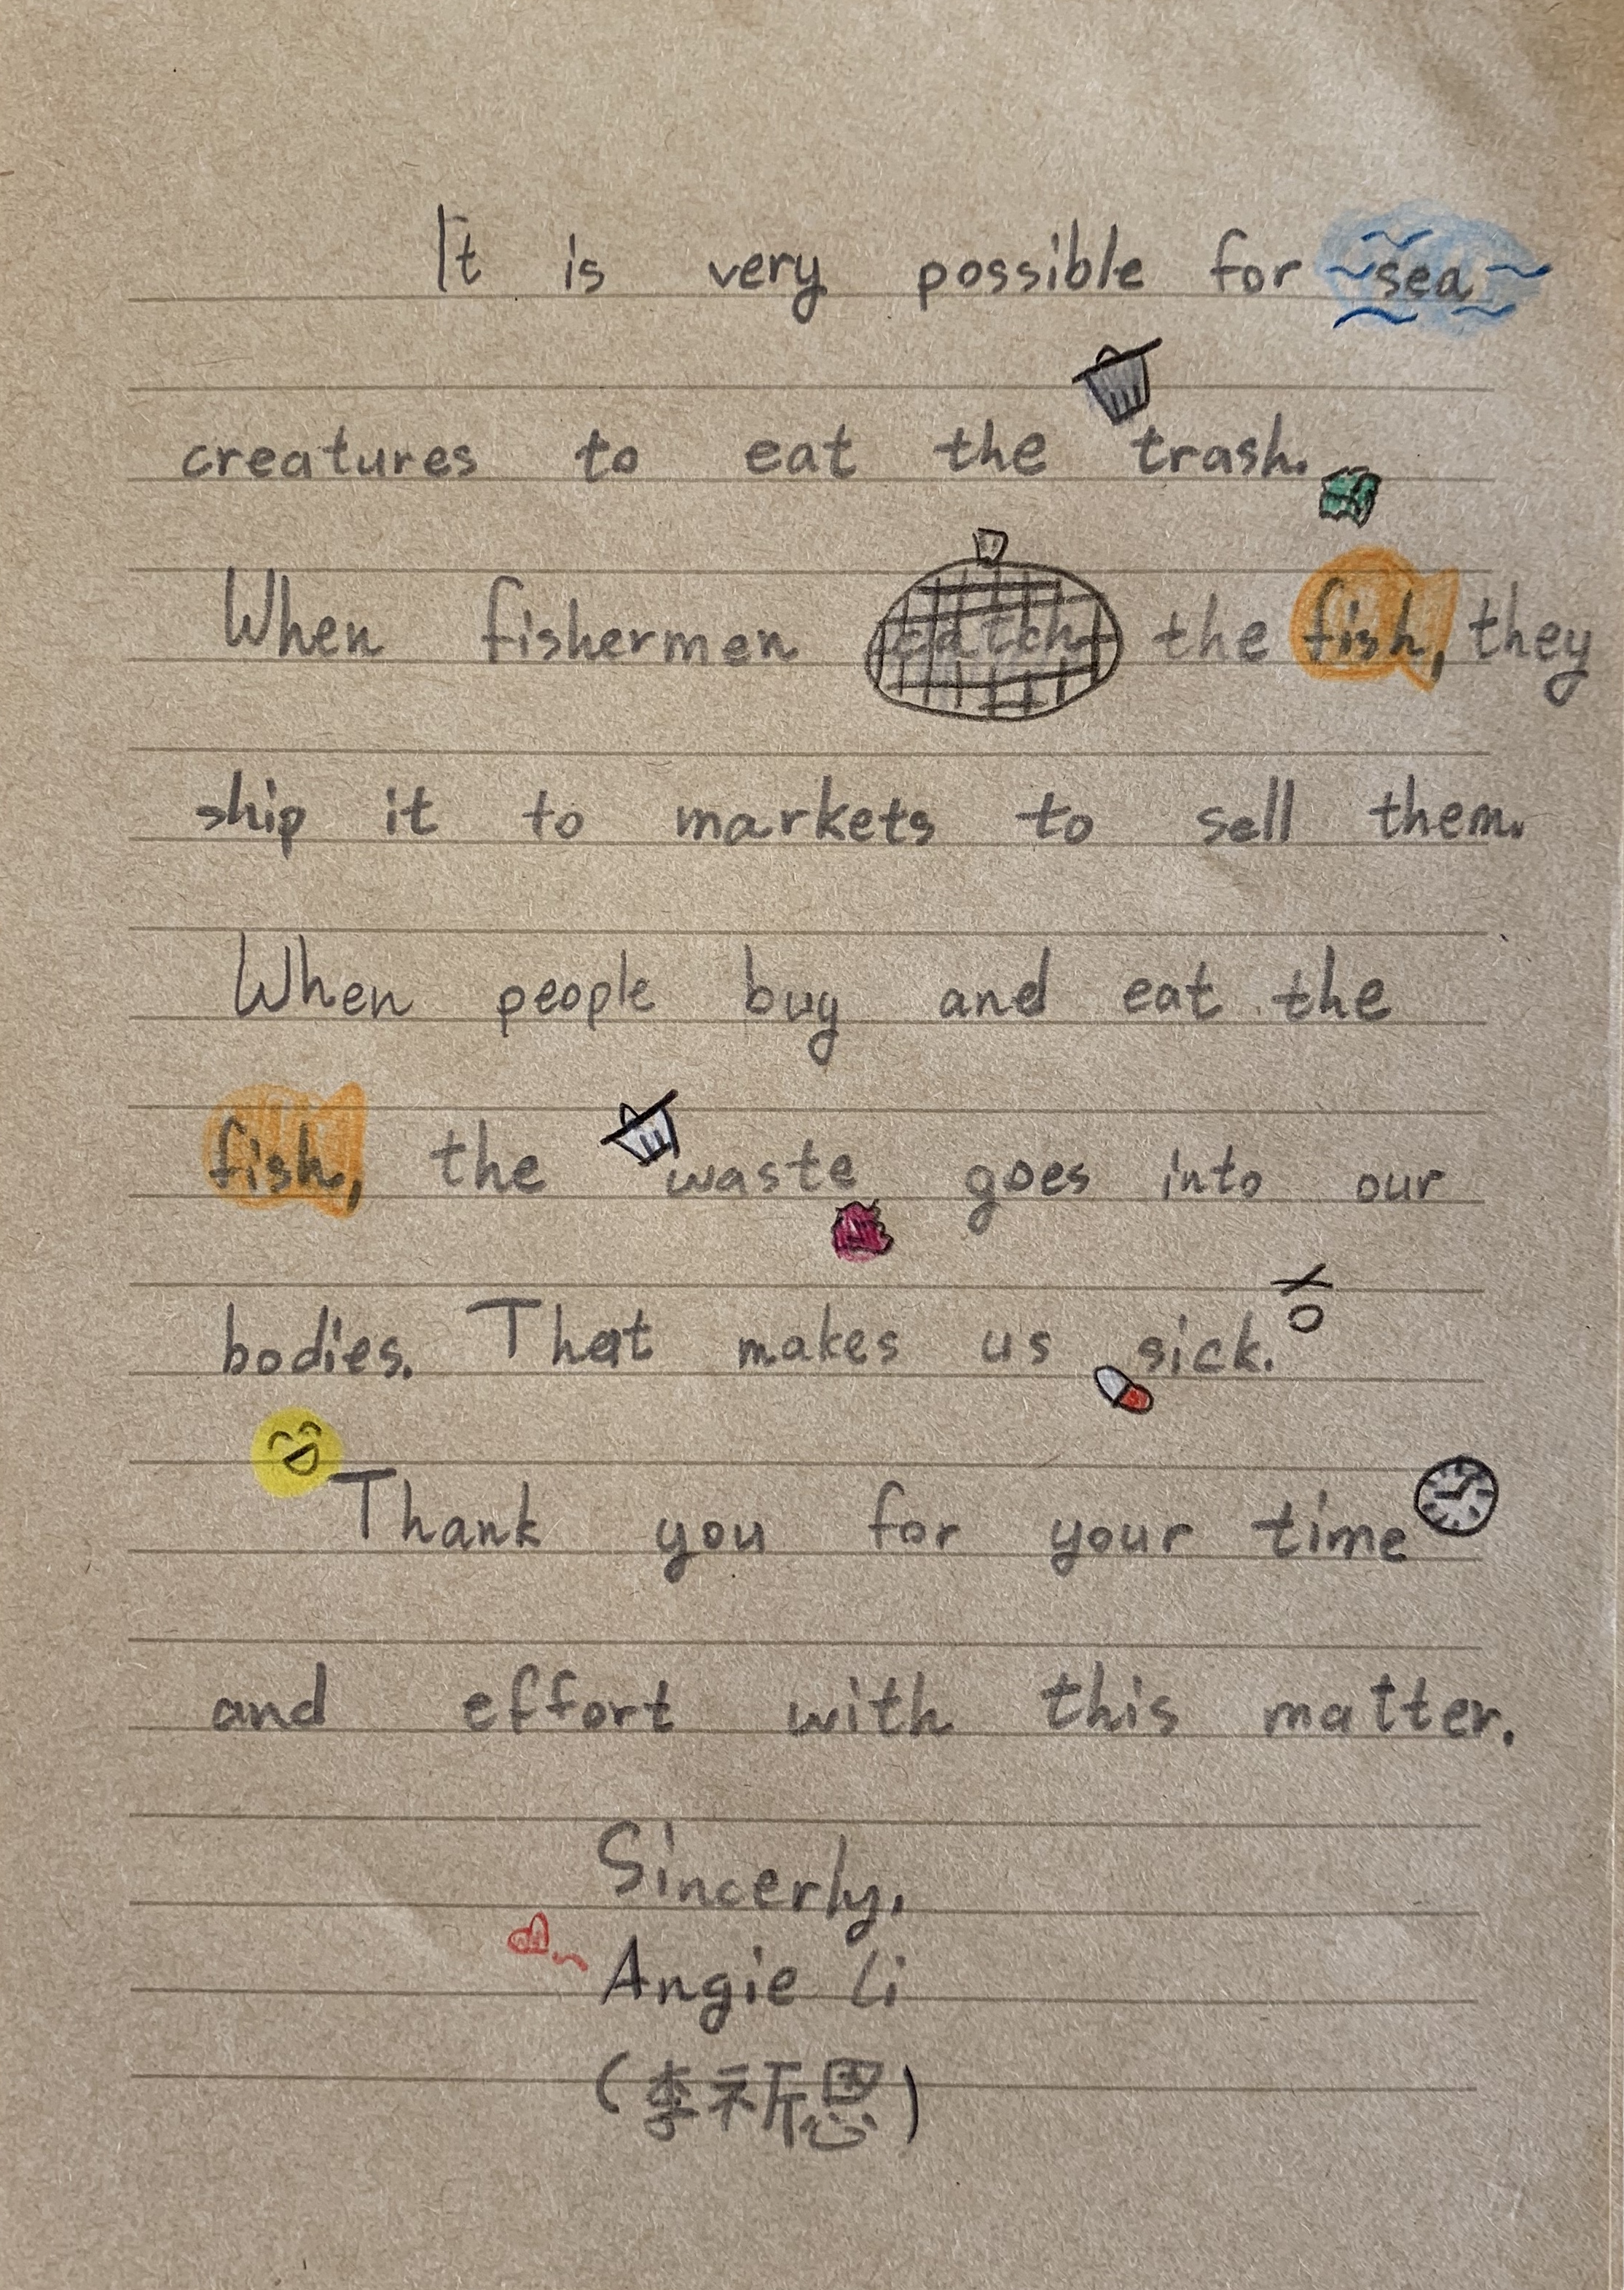 It is very possible for sea
creatures to eat the trash.
When fishermen catch the fish, they
ship it to markets to sell them.
When people buy and eat the
fish, the waste goes into our
bodies. That makes us sick.
Thank you for your time
and effort with this matter.
Sincerly,
Angie Li
(李祈恩)